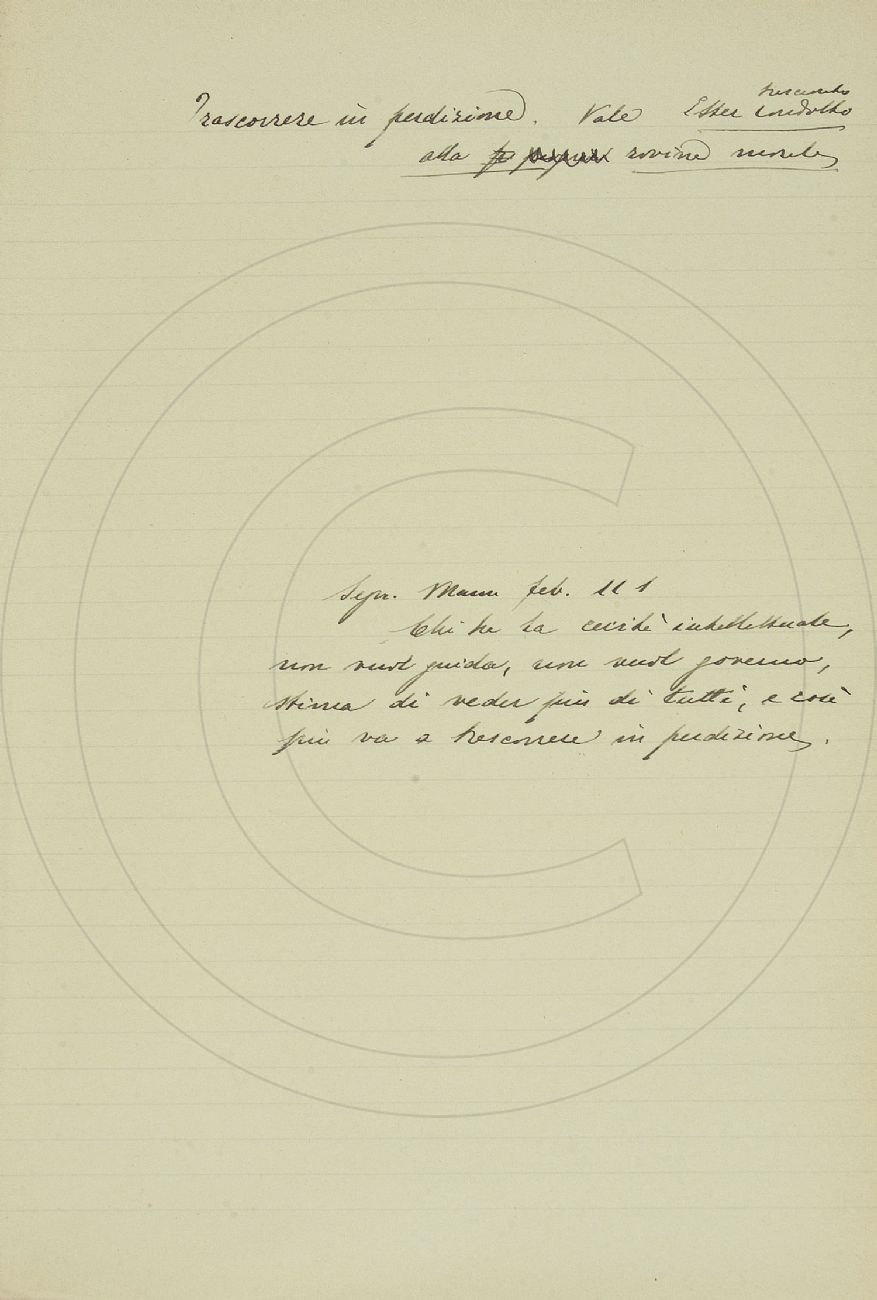 trascinato
Trascorrere in perdizione. Vale Esser condotto
alla rovina morale,
Segn. Mann. feb. 11 1
Chi ha la cecità intellettuale,
non vuol guida, non vuol governo,
stima di veder più di tutti, e così
più va a trascorrere in perdizione.